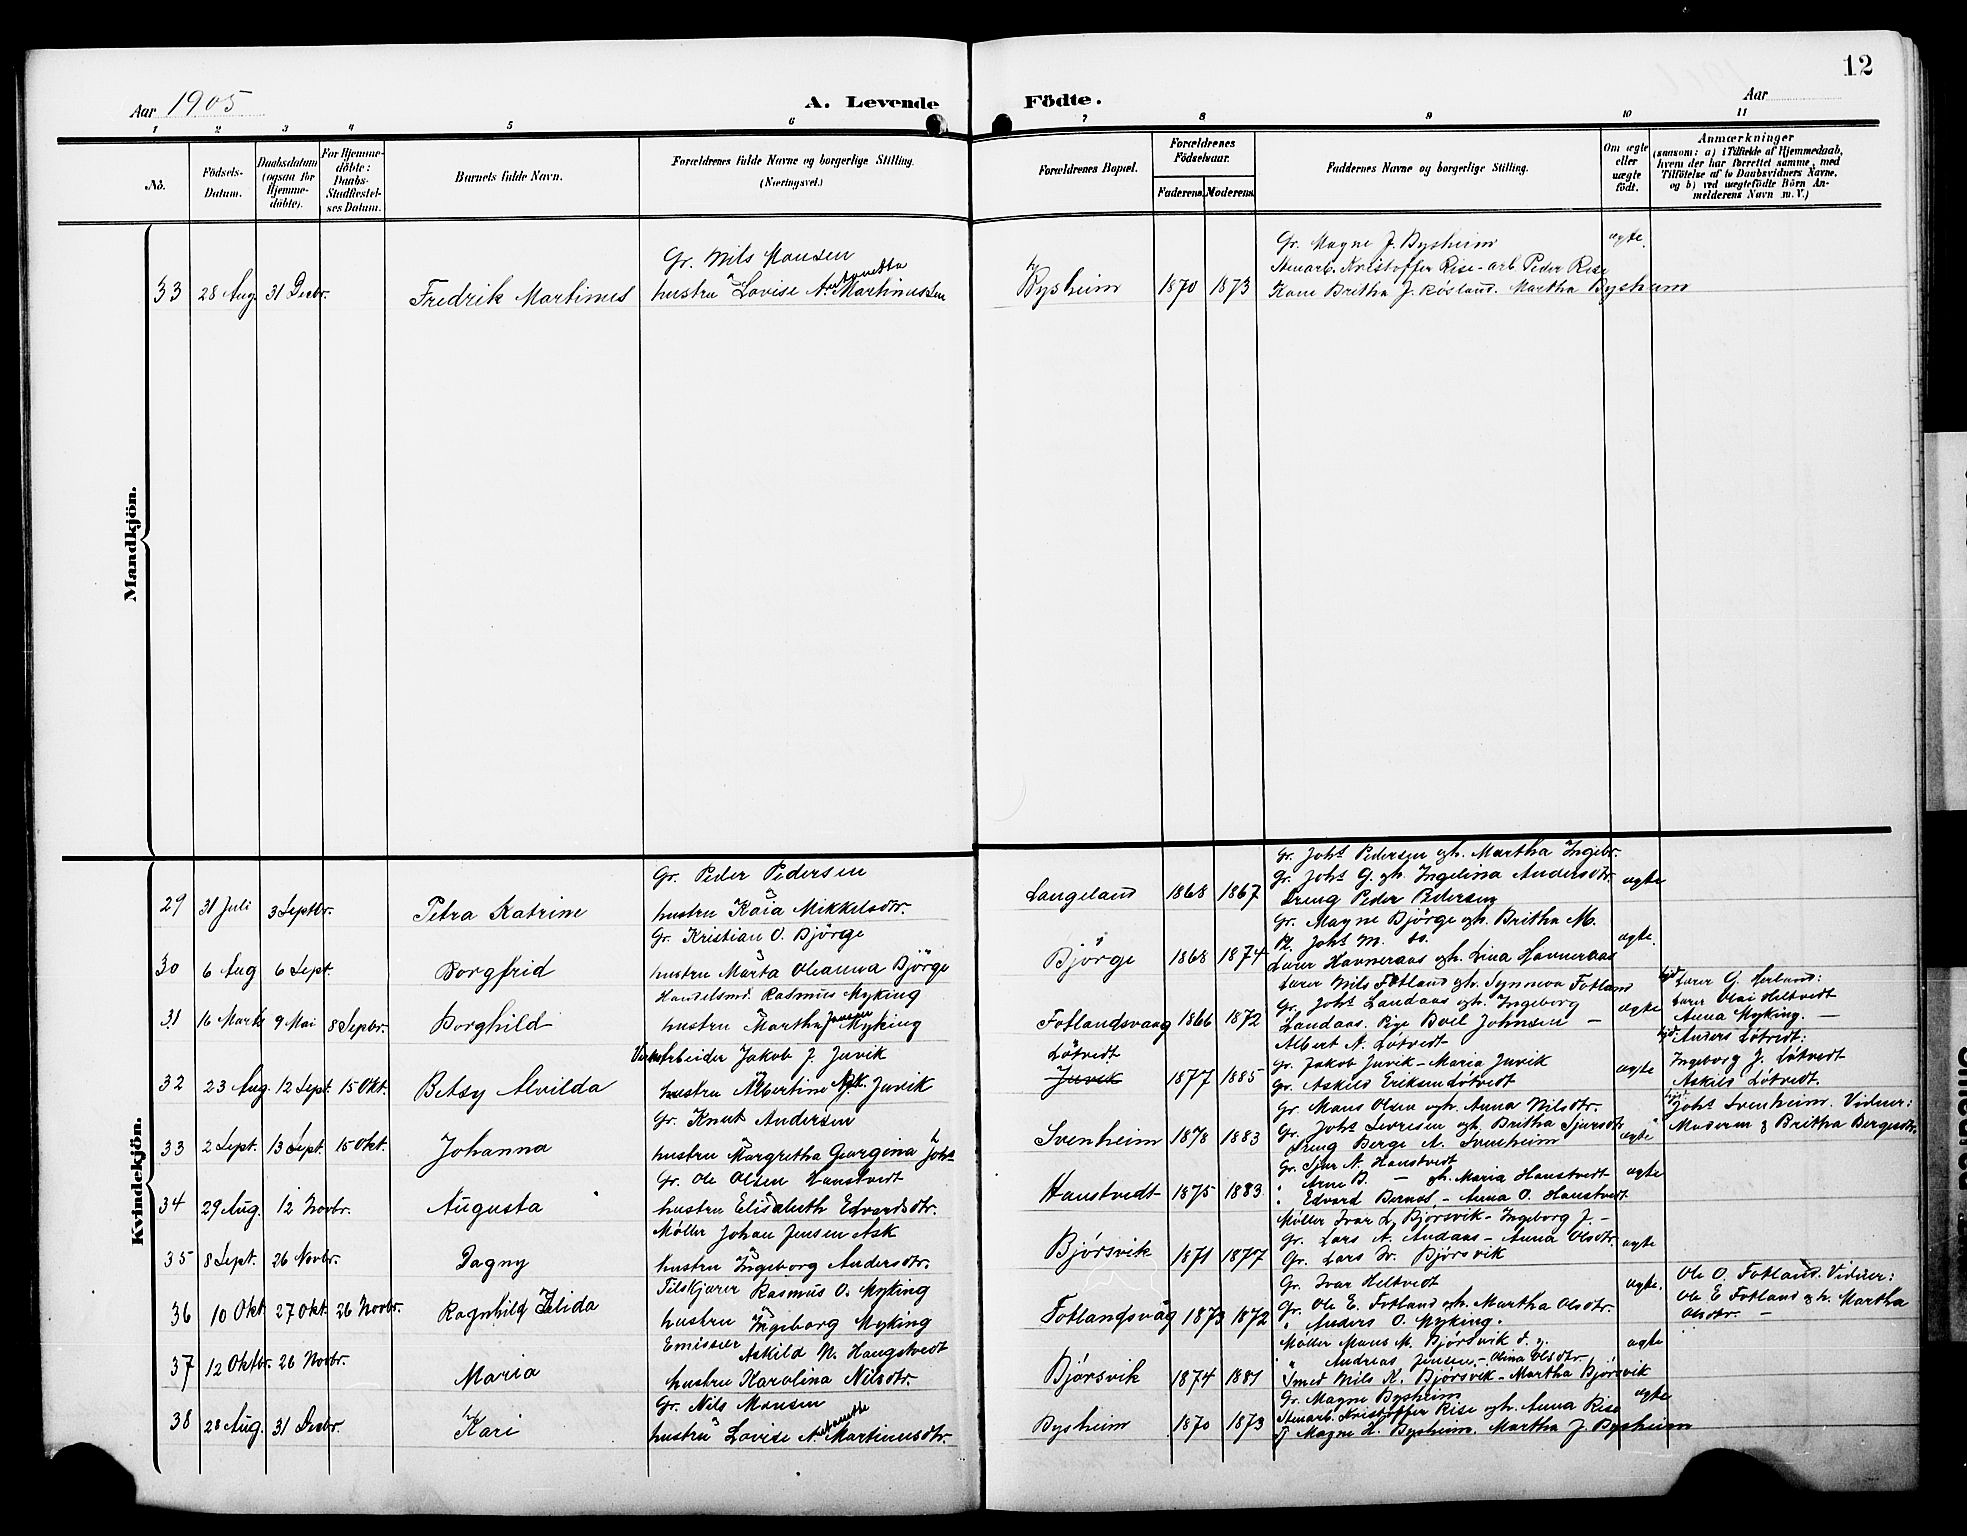 12
Aar 1905
A. Levende Födte.
Aar
1 2 3 4 5 6 7 8 9 10 11
No.
Födsels-Datum.
Daabsdatum (ogsaa for Hjemme-döbte).
For Hjemme-döbte: Daabs-Stadfæstel-ses Datum.
Barnets fulde Navn.
Forældrenes fulde Navne og borgerlige Stilling. (Næringsvei.)
Forældrenes Bopæl.
Forældrenes Födselsaar.
Faderens. Moderens.
Faddernes Navne og borgerlige Stilling.
Om ægte eller uægte födt.
Anmærkninger
(saasom: a) i Tilfælde af Hjemmedaab,
hvem der har forrettet samme, med
Tilföielse af to Daabsvidners Navne,
og b) ved uægtefödte Börn An-
melderens Navn m. V.)
Mandkjön.
33 28 Aug. 31 Decbr. Fredrik Martinus
Gr. Nils Monsen
hustru Lovise Martinussen
Bysheim 1870 1873
Gr. Magne J. Bysheim
Stenarb. Kristoffer Rise - arb. Peder Rise
Kone Britha J. Røsland. Martha Bysheim
ægte.
Kvindekjön.
29 31 Juli 3 Septbr. Petra Katrine
Gr. Peder Pedersen
hustru Kaia Mikkelsdtr.
Langeland 1868 1867
Gr. Johs Pedersen og h. Martha Ingebr.
Gr. Johs G. og h. Ingelina Andersdtr.
Dreng Peder Pedersen
ægte
30 6 Aug 6 Sept. Borgfrid
Gr. Kristian O. Björge
hustru Marta Oleanna Björge
Björge 1868 1874
Gr. Magne Björge og h. Britha M.
Pl. Johs M. do.
Lærer Havneraas og h. Lina Havneraas
ægte.
31 16 Marts 9 Mai 8 Sepbr. Borghild
Handelsmd. Rasmus Myking
hustru Martha Jansen Myking
Fotlandsvaag 1866 1872
Lærer Nils Fotland og h. Synneva Fotland
Gr. Johs Landaas og h. Ingeborg
Landaas. Pige Boel Johnsen —
ægte
Lærer G. Herland:
Lærer Olai Heltvedt
Anna Myking. —
32 23 Aug. 12 Sept. 15 Okt. Betsy Alvilda
Arbeider Jakob J. Juvik
hustru Albertine Juvik
Løtvedt
Juvik 1877 1885
Albert A. Løtvedt
Gr. Jakob Juvik - Maria Juvik
Gr. Askild Eriksen Løtvedt
ægte
Anders Løtvedt:
Ingeborg J. Løtvedt
Askild Løtvedt.
33 2 Sept. 13 Sept. 15 Okt. Johanna
Gr. Knut Andersen
hustru Margretha Georgina Johs
Svenheim 1878 1883
Gr. Mons Olsen og h. Anna Nilsdtr.
Gr. Johs Sivresen og h. Britha Sjursdtr
Dreng Berge A. Svenheim
ægte
Johs Svenheim. Vidner:
Moderen & Britha Bergesdtr.
34 29 Aug. 12 Novbr. Augusta
Gr. Ole Olsen Hanstvedt
hustru Elisabeth Edvardsdtr.
Hanstvedt 1875 1883
Gr. Sjur N. Hanstvedt
" Arne B. — og h. Maria Hanstvedt
" Edvard Berndt - Anna O. Hanstvedt
ægte
35 8 Sept. 26 Novbr. Dagny
Møller Johan Jensen Ask
hustru Ingeborg Andersdtr.
Bjørsvik 1871 1877
Møller Ivar L. Bjørsvik - Ingeborg J. —
Gr. Lars A. Andaas - Anna Olsdtr.
Gr. Lars Iv. Bjørsvik
ægte
36 10 Okt 27 Okt. 26 Novbr. Ragnhild Elida
Tilskjærer Rasmus O. Myking
hustru Ingeborg Myking
Fotlandsvåg 1873 1872
Gr. Ivar Heltvedt
Gr. Ole E. Fotland og h. Martha Olsdtr.
" Anders O. Myking.
ægte.
Ole O. Fotland. Vidner:
Ole E Fotland og h. Martha
Olsdtr. —
37 12 Oktbr. 26 Novbr. Maria
Emissær Askild N. Haugstvedt
hustru Karolina Nilsdtr.
Bjørsvik 1874 1881
Møller Mons M. Bjørsvik
" Andreas Jensen - Olina Olsdtr.
Smed Nils K. Bjørsvik - Martha Bjørsvik
ægte
38 28 Aug. 31 Decbr. Kari
Gr. Nils Monsen
hustru Lovise Martinusdtr.
Bysheim 1870 1873
Gr. Magne Bysheim
Stenarb. Kristoffer Rise og h. Anna Rise
Magne K. Bysheim. Martha J. Bysheim
ægte